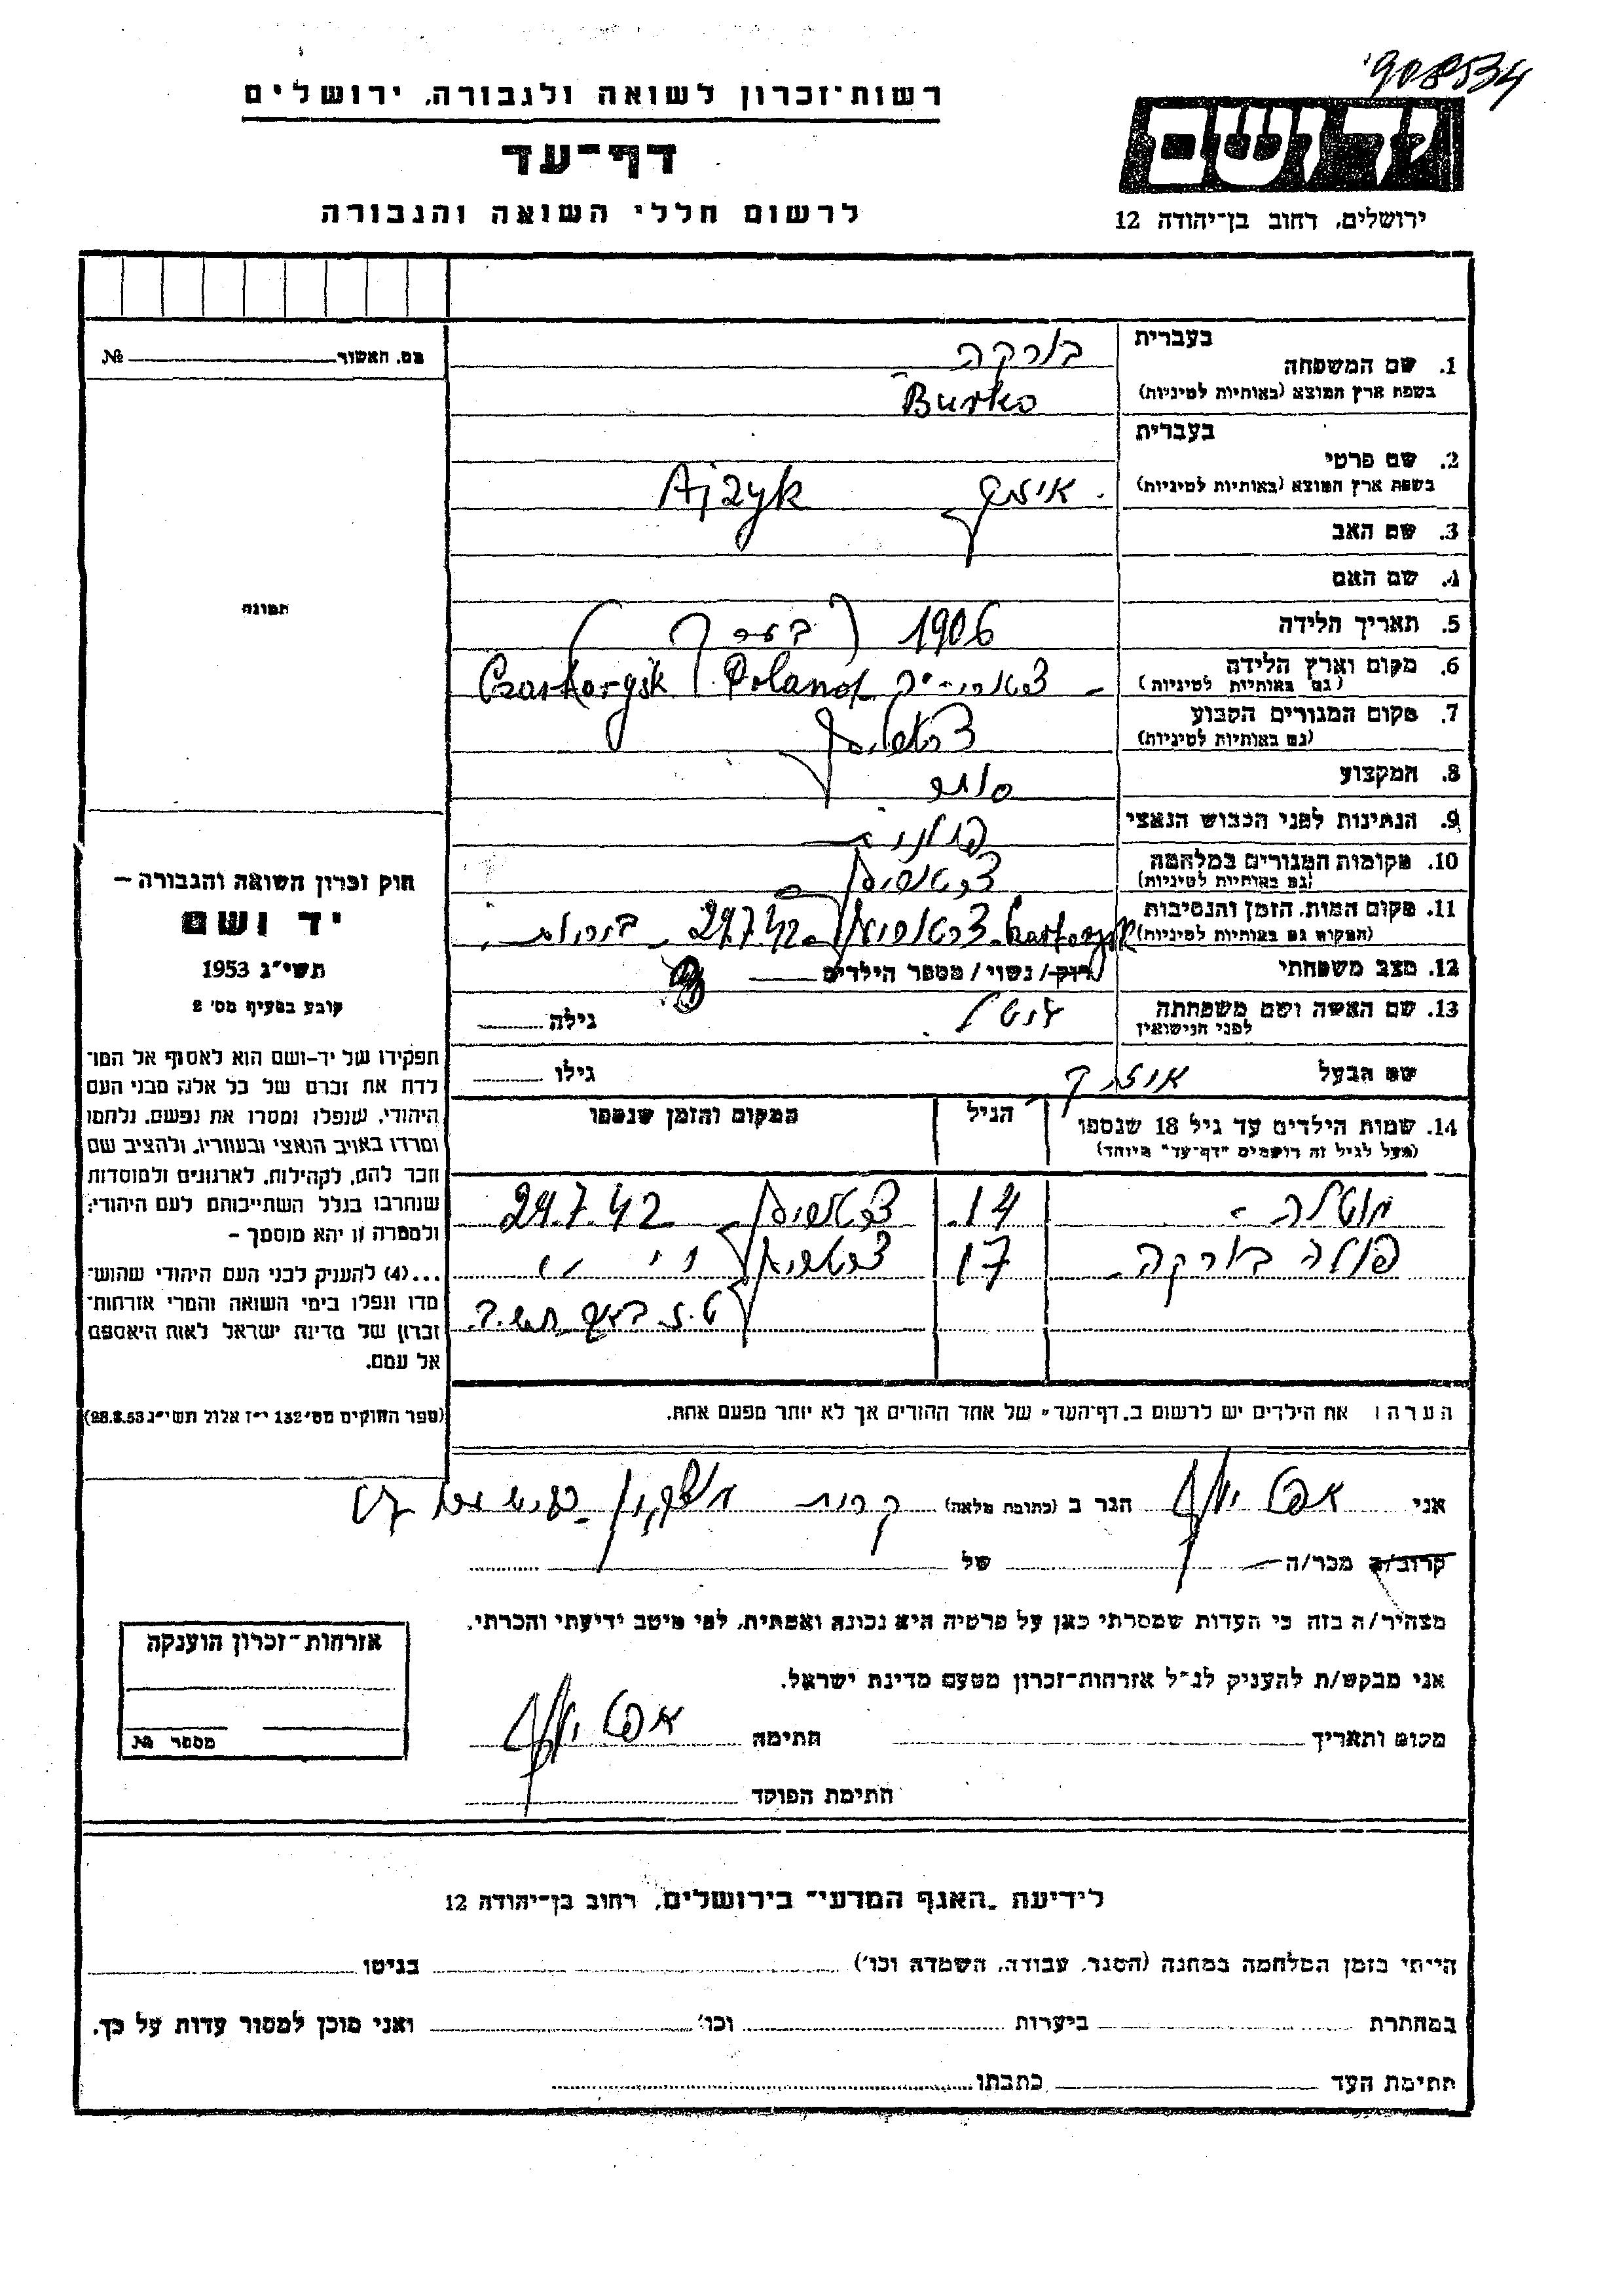 908534
רשות־זכרון לשואה ולגבורה, ירושלים
דף־עד
לרשום חללי השואה והגבורה
ידושם
ירושלים, רחוב בן־יהודה 12
בעברית
1. שם המשפחה
בורקה
בשפת ארץ המוצא (באותיות לטיניות)
Burko
בעברית
2. שם פרטי
בשפת ארץ המוצא (באותיות לטיניות)
אייזיק Ajzyk
3. שם האב
4. שם האם
5. תאריך הלידה
1906 (בערך)
6. מקום וארץ הלידה
(גם באותיות לטיניות)
Poland
7. מקום המגורים הקבוע
(גם באותיות לטיניות)
8. המקצוע
סוחר
9. הנתינות לפני הכבוש הנאצי
פולנית
10. מקומות המגורים במלחמה
(גם באותיות לטיניות)
11. מקום המות, הזמן והנסיבות
(המקום גם באותיות לטיניות)
29.7.42
12. מצב משפחתי
רווק / נשוי / מספר הילדים
13. שם האשה ושם משפחתה
לפני הנישואין
גילה
שם הבעל
אייזיק
גילו
14. שמות הילדים עד גיל 18 שנספו
(מעל לגיל זה רושמים "דף־עד" מיוחד)
הגיל
המקום והזמן שנספו
מוטלה 14 29.7.42
פולה בורקה 17 " "
ט"ו באב תש"ב
הערה: את הילדים יש לרשום ב„דף־העד" של אחד ההורים אך לא יותר מפעם אחת.
מס. האשור № 
תמונה
חוק זכרון השואה והגבורה –
יד ושם
תשי"ג 1953
קובע בסעיף מס' 2
תפקידו של יד-ושם הוא לאסוף אל המו־
לדת את זכרם של כל אלה מבני העם
היהודי, שנפלו ומסרו את נפשם, נלחמו
ומרדו באויב הנאצי ובעוזריו, ולהציב שם
וזכר להם, לקהילות, לארגונים ולמוסדות
שנחרבו בגלל השתייכותם לעם היהודי;
ולמטרה זו יהא מוסמך –
...(4) להעניק לבני העם היהודי שהוש־
מדו ונפלו בימי השואה והמרי אזרחות־
זכרון של מדינת ישראל לאות היאספם
אל עמם.
(ספר החוקים מס' 132 י"ז אלול תשי"ג 28.8.53)
אני אפט יוסף הגר ב (כתובת מלאה) קרית
קרוב/ה מכר/ה של
מצהיר/ה בזה כי העדות שמסרתי כאן על פרטיה היא נכונה ואמתית, לפי מיטב ידיעתי והכרתי.
אני מבקש/ת להעניק לנ"ל אזרחות־זכרון מטעם מדינת ישראל.
מקום ותאריך חתימה אפט יוסף
חתימת הפוקד
אזרחות־זכרון הוענקה
מספר №
לידיעת „האגף המדעי" בירושלים, רחוב בן־יהודה 12
הייתי בזמן המלחמה במחנה (הסגר, עבודה, השמדה וכו') בגיטו
במחתרת ביערות וכו' ואני מוכן למסור עדות על כך.
חתימת העד כתבתו